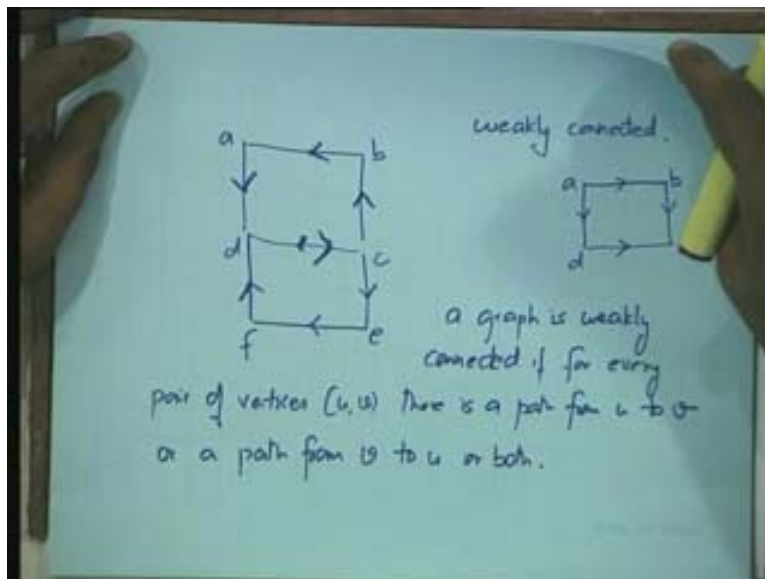 weakly connected.
a b
a b
d
d c
f e
a graph is weakly
connected if for every
pair of vertices (u,v) there is a path from u to v
or a path from v to u or both.